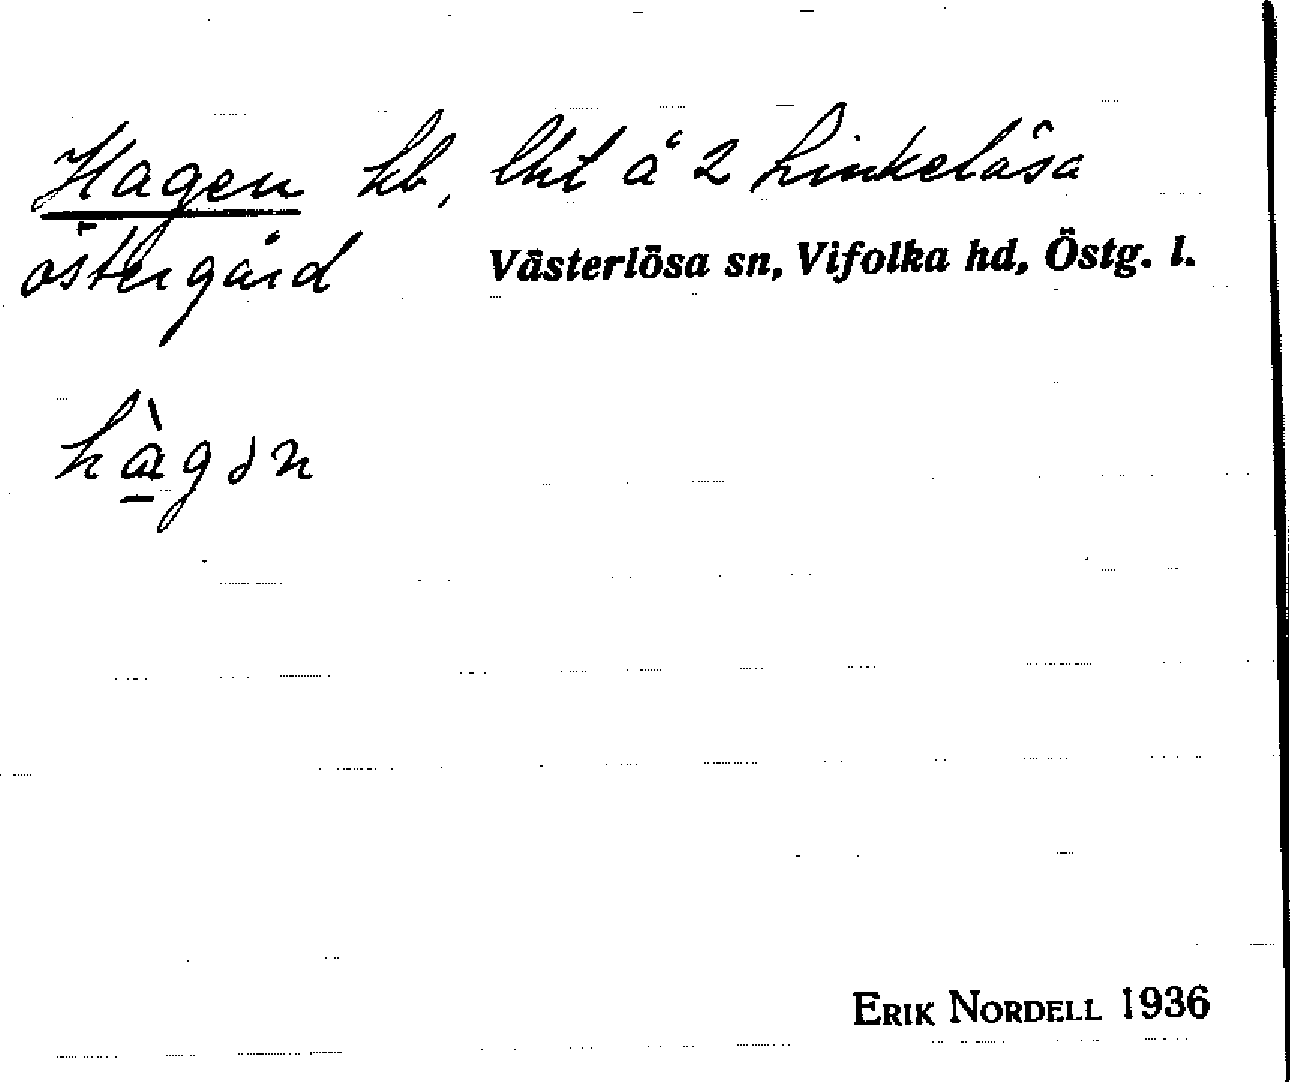 Hagen hb, lht å 2 Linkelösa
östergård Västerlösa sn, Vifolka hd, Östg. l.
hàgən
ERIK NORDELL 1936